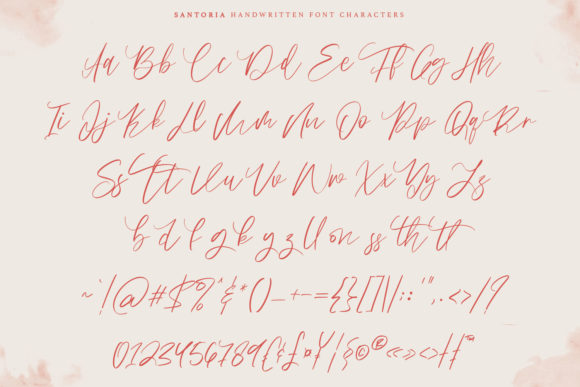 SANTORIA HANDWRITTEN FONT CHARACTERS
Aa Bb Cc Dd Ee Ff Gg Hh
Ii Jj Kk Ll Mm Nn Oo Pp Qq Rr
Ss Tt Uu Vv Ww Xx Yy Zz
b d f g k y z ll on ss th tt
~`!@#$%^&*()_+-={}[]\|/:;'",.<>/?
0123456789